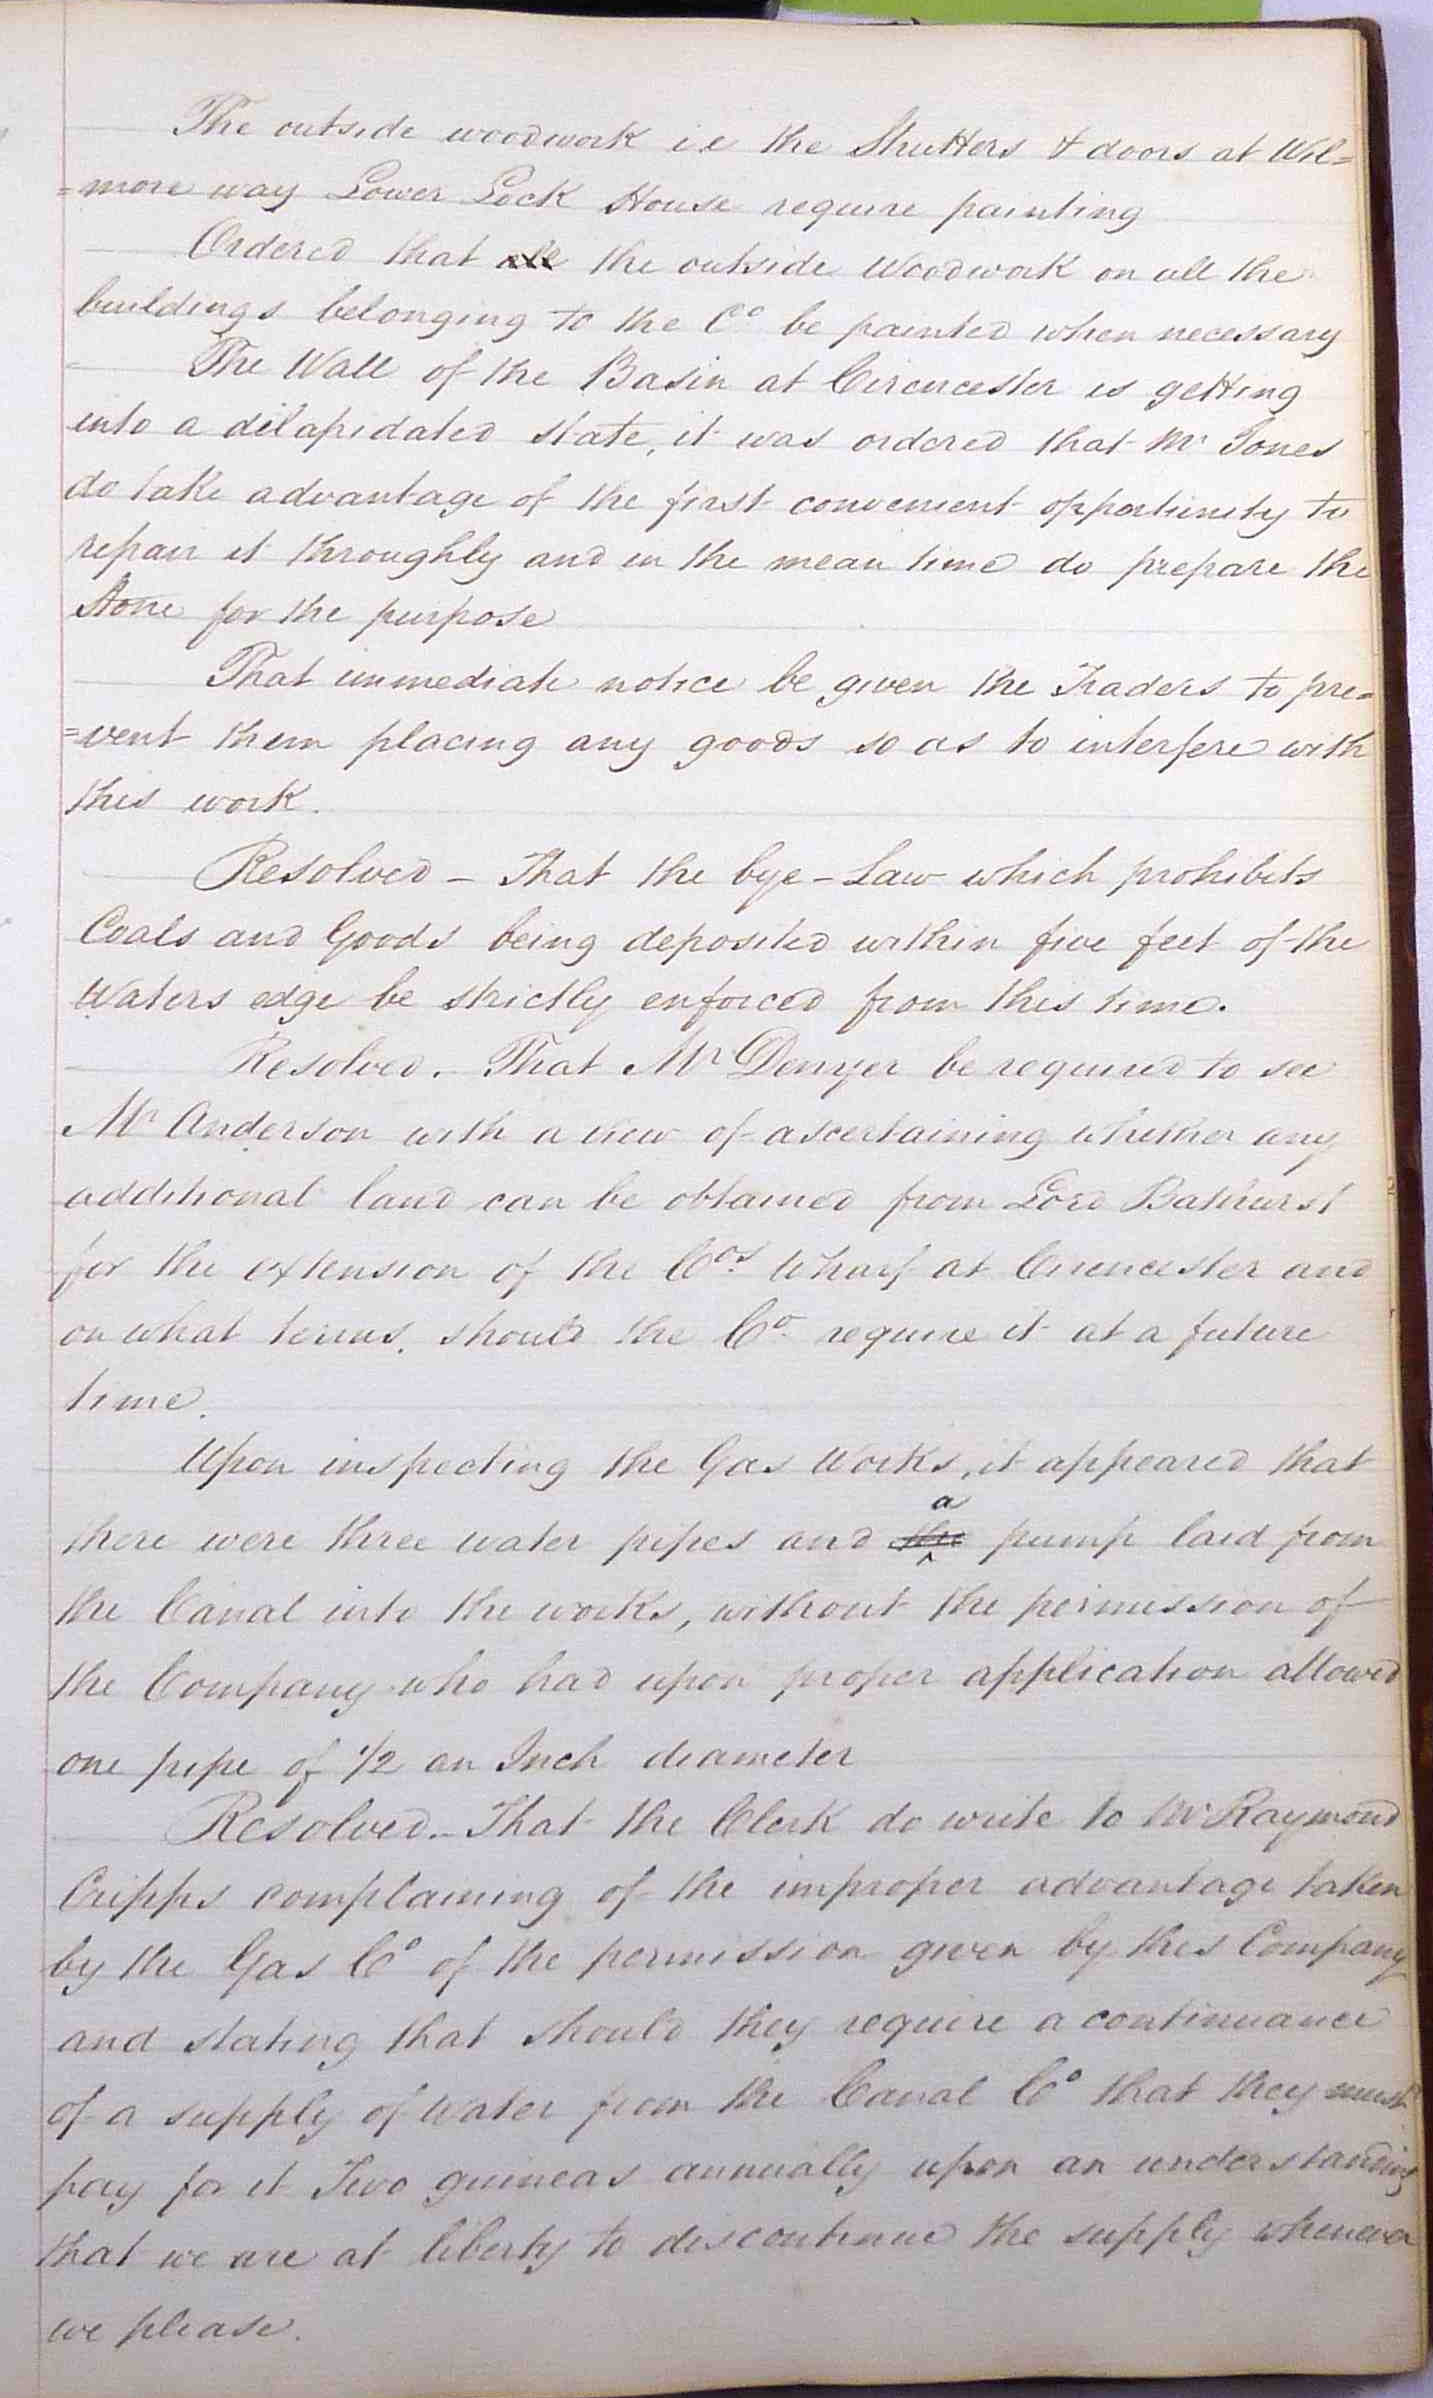 The outside woodwork i e the Shutters & doors at Wil=
=more way Lower Lock House require painting
Ordered that all the outside Woodwork on all the
buildings belonging to the Co be painted when necessary
The Wall of the Basin at Cirencester is getting
into a dilapidated state, it was ordered that Mr Jones
do take advantage of the first convenient opportunity to
repair it throughly and in the mean time do prepare the
Stone for the purpose
That immediate notice be given the Traders to pre=
=vent them placing any goods so as to interfere with
this work.
Resolved – That the bye-Law which prohibits
Coals and Goods being deposited within five feet of the
Waters edge be strictly enforced from this time.
Resolved. – That Mr Denyer be required to see
Mr Anderson with a view of ascertaining whether any
additional land can be obtained from Lord Bathurst
for the extension of the Cos. Wharf at Cirencester and
on what terms, should the Co. require it at a future
time.
Upon inspecting the Gas Works, it appeared that
there were three water pipes and the a pump laid from
the Canal into the works, without the permission of
the Company who had upon proper application allowed
one pipe of 1/2 an Inch diameter
Resolved. – That the Clerk do write to Mr Raymond
Cripps complaining of the improper advantage taken
by the Gas Co of the permission given by this Company
and stating that should they require a continuance
of a supply of Water from the Canal Co that they must
pay for it Two guineas annually upon an understanding
that we are at liberty to discontinue the supply whenever
we please.